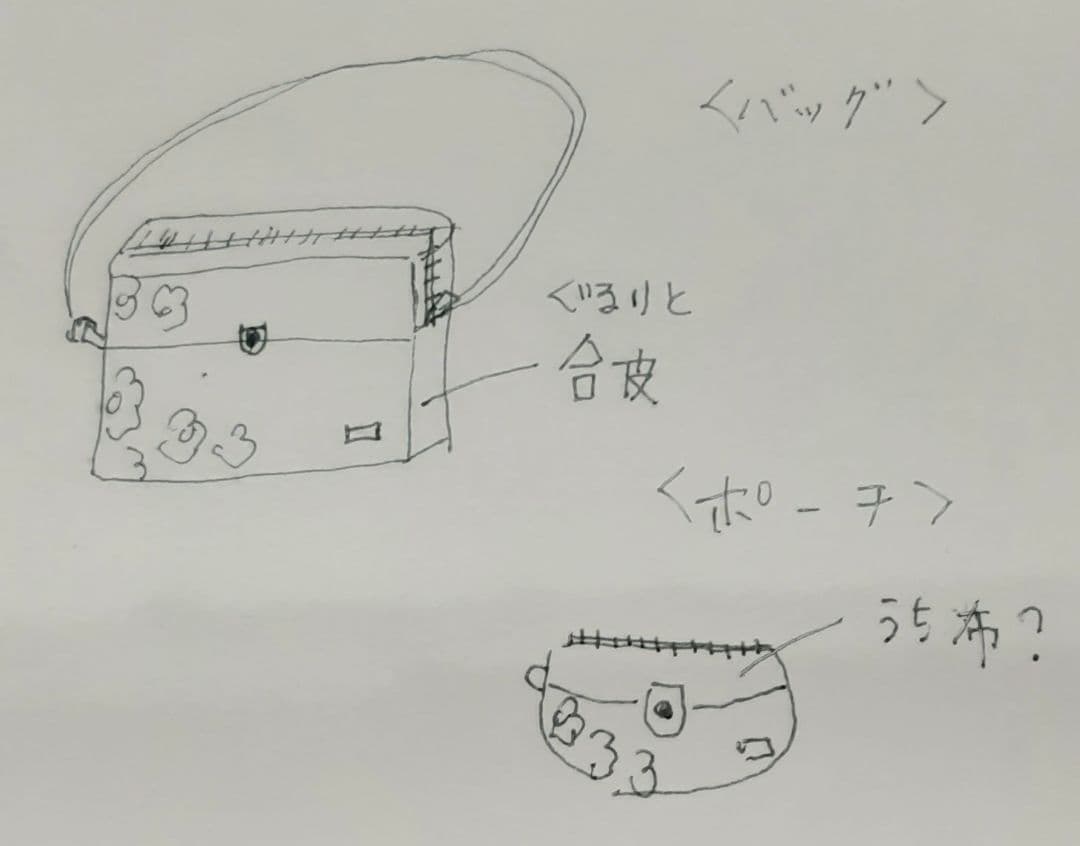 <バッグ>
ぐるりと
合皮
<ポーチ>
うち布?